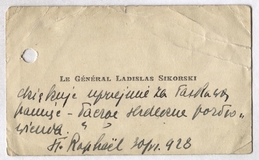 LE GÉNÉRAL LADISLAS SIKORSKI
dziękuje uprzejmie za łaskawą
pamięć - łącząc serdeczne pozdro-
wienia.
St Raphaël 928